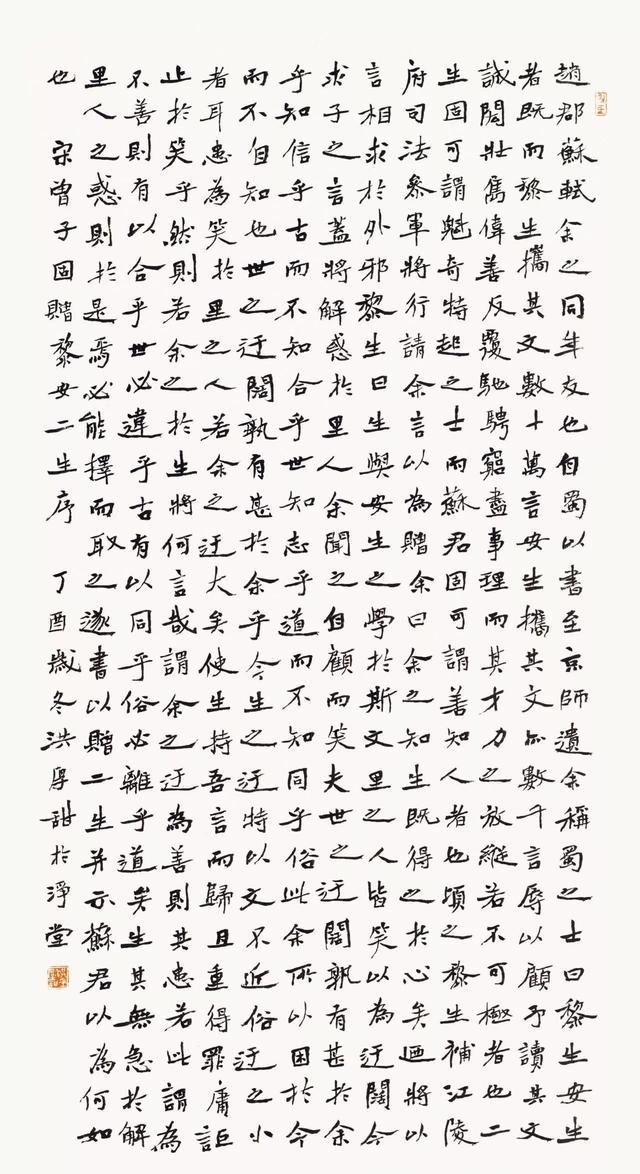 趙郡蘇軾余之同年友也自蜀以書至京師遺余稱蜀之士曰黎生安生
者既而黎生攜其文數十萬言安生攜其文亦數千言辱以顧予讀其文
誠閎壯雋偉善反覆馳騁窮盡事理而其才力之放縱若不可極者也二
生固可謂魁奇特起之士而蘇君固可謂善知人者也頃之黎生補江陵
府司法參軍將行請余言以為贈余曰余之知生既得之於心矣迺將以
言相求於外邪黎生曰生與安生之學於斯文里之人皆笑以為迂闊今
求子之言蓋將解惑於里人余聞之自顧而笑夫世之迂闊孰有甚於余
乎知信乎古而不知合乎世知志乎道而不知同乎俗此余所以困於今
而不自知也世之迂闊孰有甚於余乎今生之迂特以文不近俗迂之小
者耳患為笑於里之人若余之迂大矣使生持吾言而歸且重得罪庸詎
止於笑乎然則若余之於生將何言哉謂余之迂為善則其患若此謂為
不善則有以合乎世必違乎古有以同乎俗必離乎道矣生其無急於解
里人之惑則於是焉必能擇而取之遂書以贈二生并示蘇君以為何如
也 宋曾子固贈黎安二生序 丁酉歲冬洪厚甜於淨堂